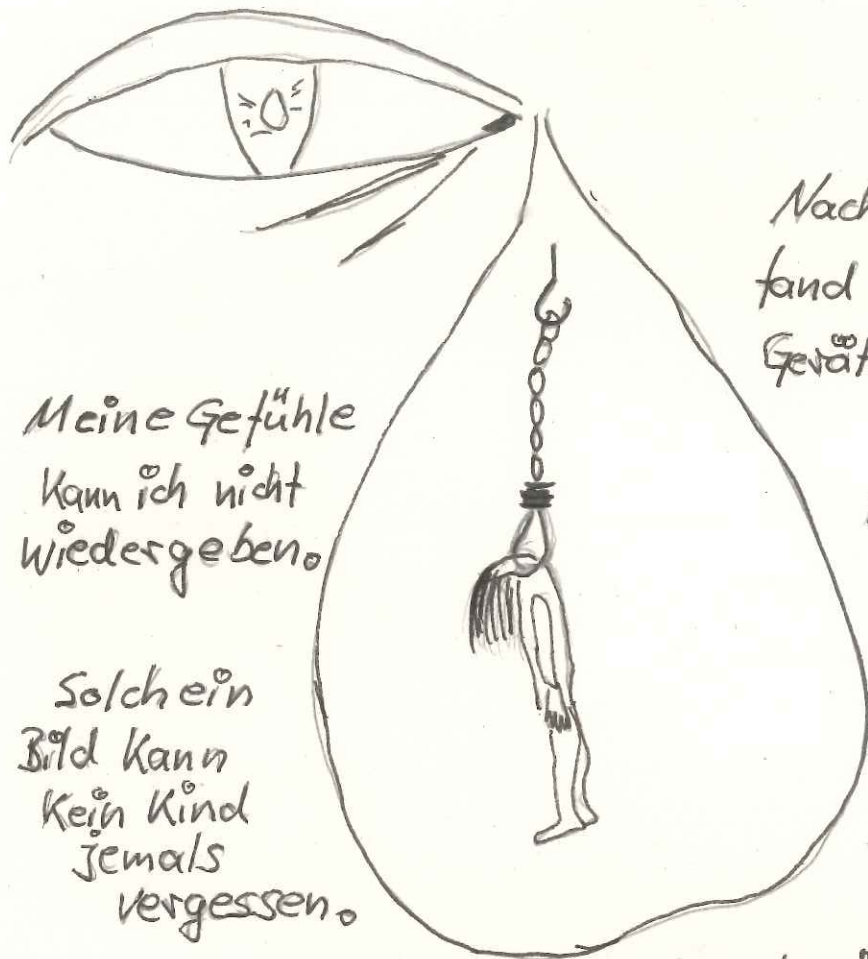 Meine Gefühle
Kann ich nicht
wiedergeben.
Solch ein
Bild Kann
Kein Kind
jemals
vergessen.
Nach
fand
Gerät